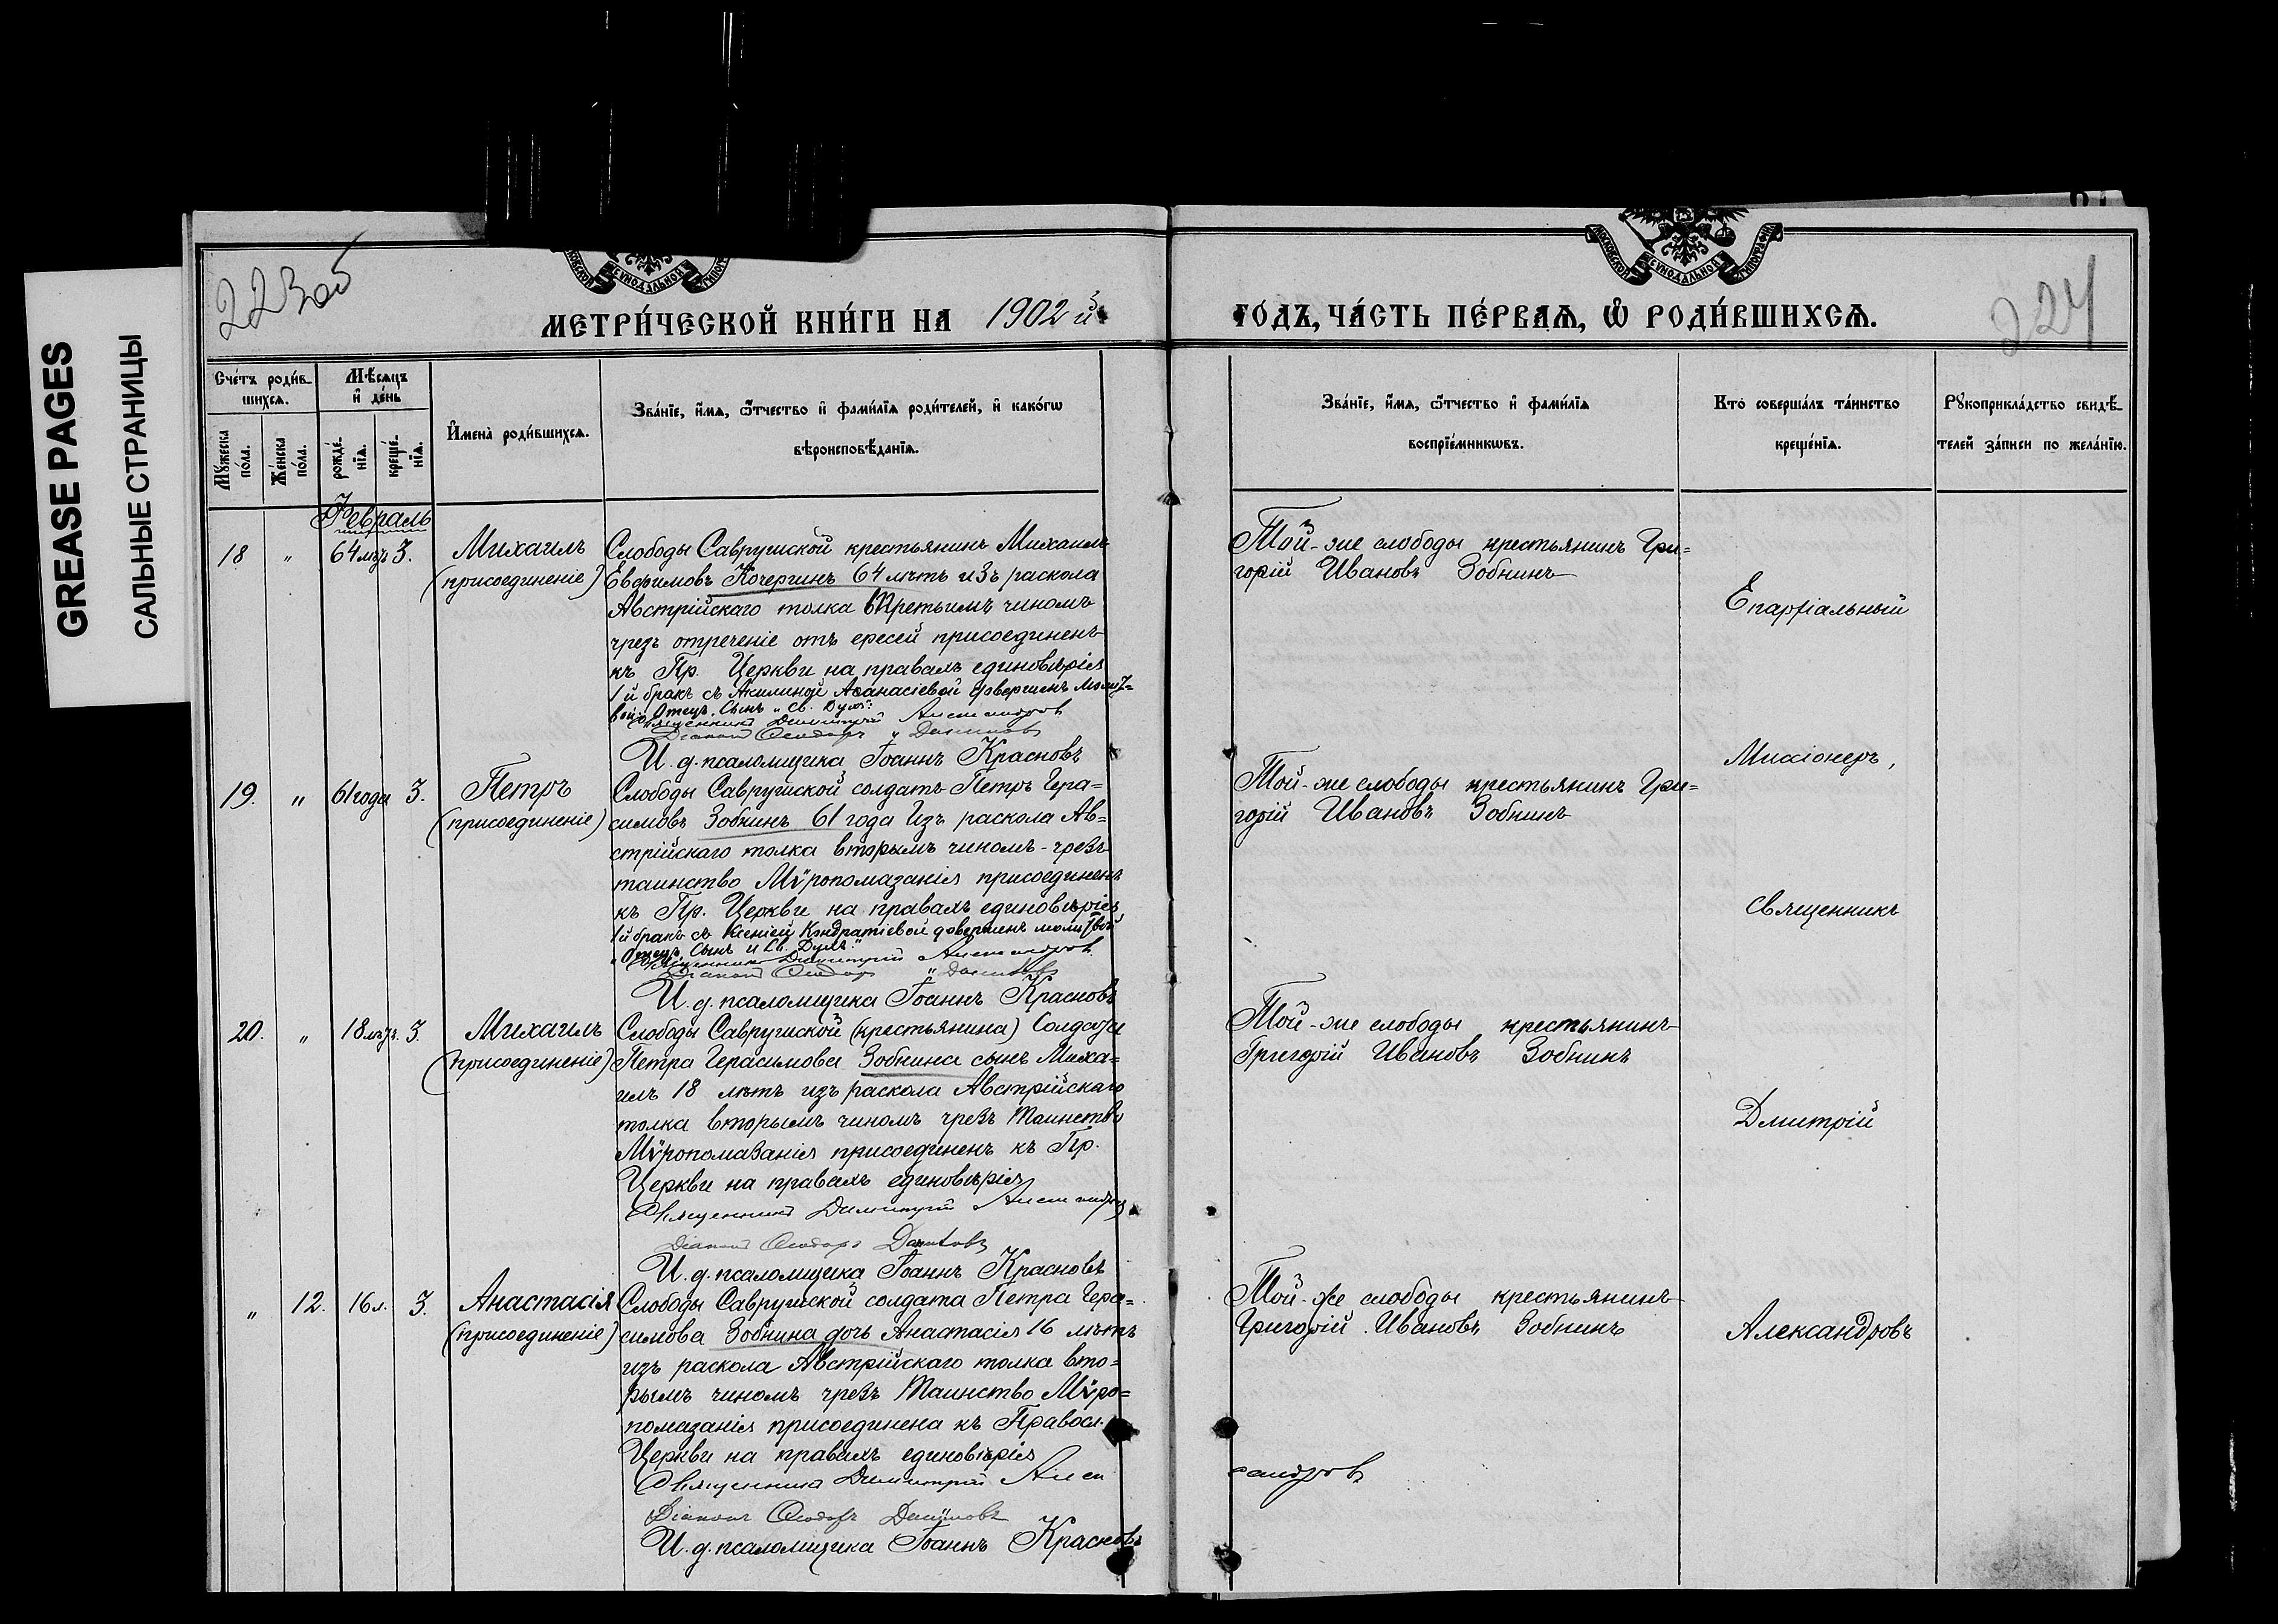 GREASE PAGES
САЛЬНЫЕ СТРАНИЦЫ
223об
224
МЕТРИ́ЧЕСКОЙ КНИ́ГИ НА 1902 й
ГО́ДЪ, ЧА́СТЬ ПЕ́РВАѦ, Ѡ҆ РОДИ́ВШИХСѦ.
Сче́тъ роди́в-
шихсѧ.
Мꙋ́жеска
по́ла.
Же́нска
по́ла.
Мѣ́сѧцъ
и҆ де́нь
рожде́-
нїѧ.
креще́-
нїѧ.
И҆мена̀ роди́вшихсѧ.
Зва́нїе, и҆́мѧ, ѻ҆́тчество и҆ фами́лїѧ роди́телей, и҆ како́гѡ
вѣроисповѣ́данїѧ.
Зва́нїе, и҆́мѧ, ѻ҆́тчество и҆ фами́лїѧ
воспрїе́мникѡвъ.
Кто̀ соверша́лъ та́инство
креще́нїѧ.
Рꙋкоприкла́дство свидѣ́-
телей за́писи по жела́нїю.
Февраль
18 " 64 лѣтъ 3.
Михаилъ
(присоединеніе)
Слободы Саврушской крестьянинъ Михаилъ
Евфимовъ Кочергинъ 64 лѣтъ изъ раскола
Австрійскаго толка третьимъ чиномъ
чрезъ отреченіе отъ ересей присоединенъ
къ Пр. Церкви на правахъ единовѣрія
1й бракъ съ Акилиной Аѳанасіевой довершенъ молит-
вой Отецъ, Сынъ и Св. Духъ"
Священникъ Димитрій Александровъ
Діаконъ Ѳеодоръ
И. д. псаломщика Іоаннъ Красновъ
Той-же слободы крестьянинъ Гри-
горій Ивановъ Зобнинъ
Епархіальный
Миссіонеръ,
Священникъ
Дмитрій
Александровъ
19. " 61 года 3.
Петръ
(присоединеніе)
Слободы Саврушской солдатъ Петръ Гера-
симовъ Зобнинъ 61 года изъ раскола Ав-
стрійскаго толка вторымъ чиномъ-чрезъ
таинство Мѵропомазанія присоединенъ
къ Пр. Церкви на правахъ единовѣрія
1й бракъ съ Ксеніей Кондратіевой довершенъ молитвой
"Отецъ, Сынъ и Св. Духъ"
Священникъ Димитрій Александровъ
Діаконъ Ѳеодоръ
И. д. псаломщика Іоаннъ Красновъ
Той-же слободы крестьянинъ Гри-
горій Ивановъ Зобнинъ
20. " 18 лѣтъ. 3.
Михаилъ
(присоединеніе)
Слободы Саврушской (крестьянина) Солдата
Петра Герасимова Зобнина сынъ Миха-
илъ 18 лѣтъ изъ раскола Австрійскаго
толка вторымъ чиномъ чрезъ Таинство
Мѵропомазанія присоединенъ къ Пр.
Церкви на правахъ единовѣрія
Священникъ Димитрій Александровъ
Діаконъ Ѳеодоръ
И. д. псаломщика Іоаннъ Красновъ
Той-же слободы крестьянинъ
Григорій Ивановъ Зобнинъ
" 12. 16 л. 3.
Анастасія
(присоединеніе)
Слободы Саврушской солдата Петра Гера-
симова Зобнина дочь Анастасія 16 лѣтъ
изъ раскола Австрійскаго толка вто-
рымъ чиномъ чрезъ Таинство Мѵро-
помазанія присоединена къ Правосл.
Церкви на правахъ единовѣрія
Священникъ Димитрій Александровъ
Діаконъ Ѳеодоръ
И. д. псаломщика Іоаннъ Красновъ
Той-же слободы крестьянинъ
Григорій Ивановъ Зобнинъ